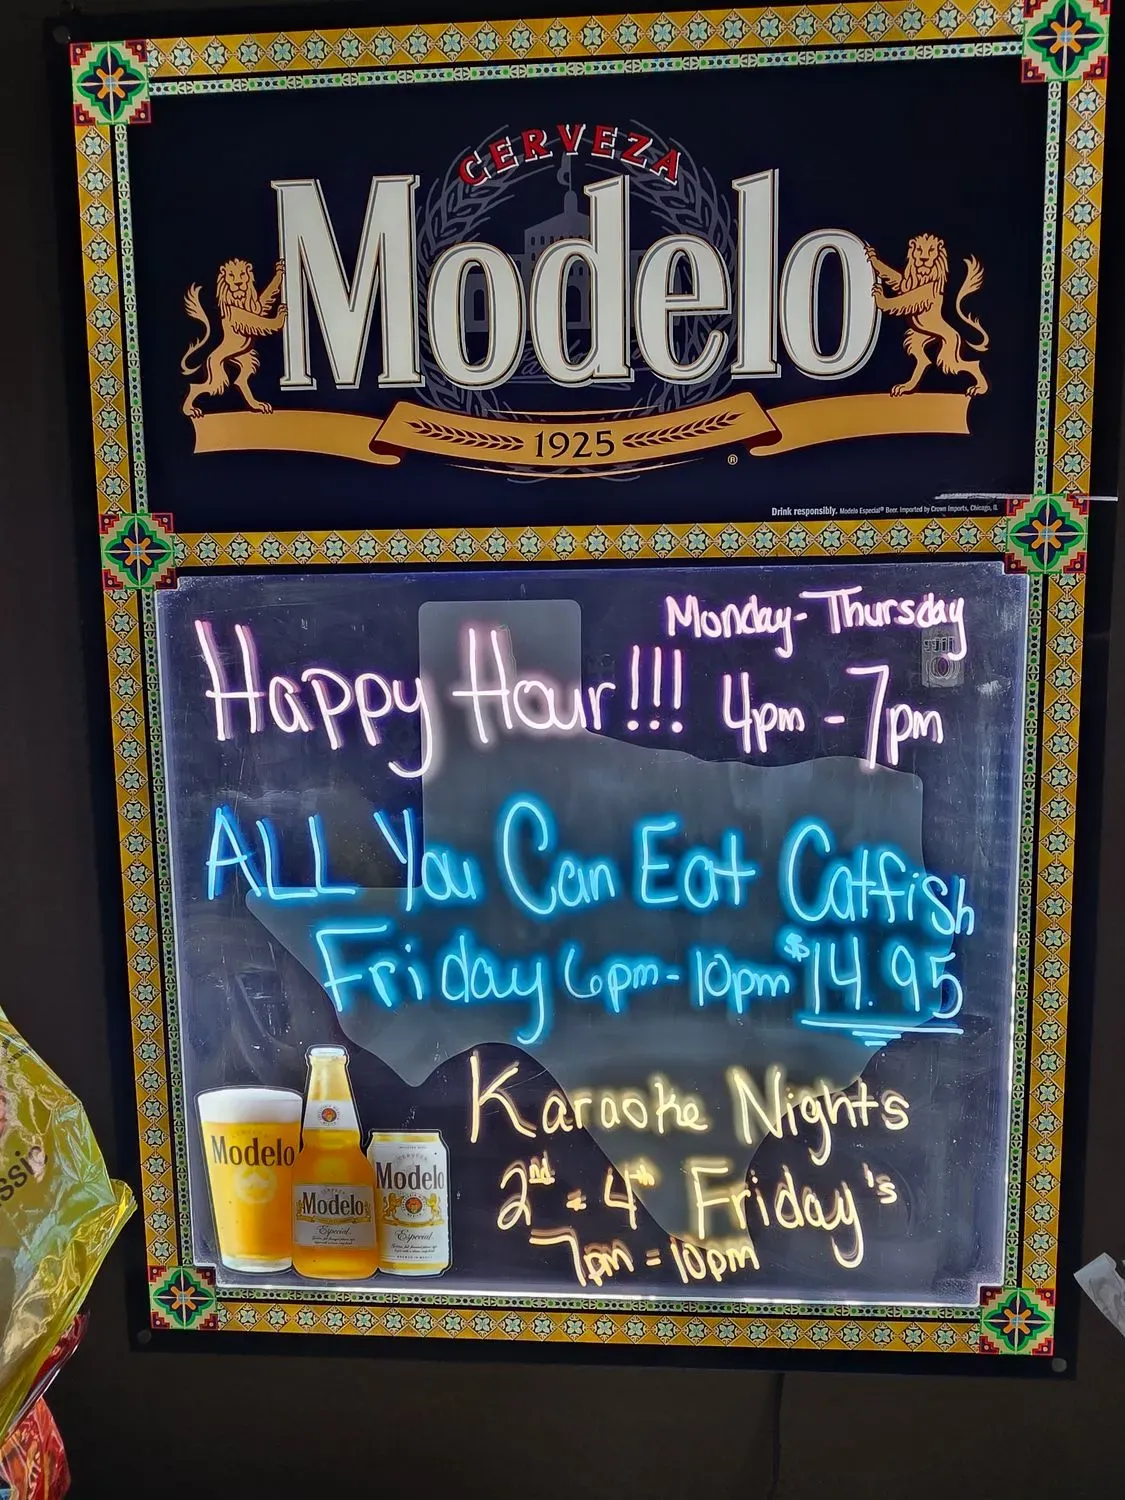 CERVEZA
Modelo
1925
®
Drink responsibly. Modelo Especial® Beer. Imported by Crown Imports, Chicago, IL
Monday-Thursday
Happy Hour!!! 4pm - 7pm
ALL You Can Eat Catfish
Friday 6pm-10pm $14.95
Karaoke Nights
2nd = 4th Friday's
7pm = 10pm
Modelo
Modelo
Especial
CERVEZA
Modelo
Especial
ssic